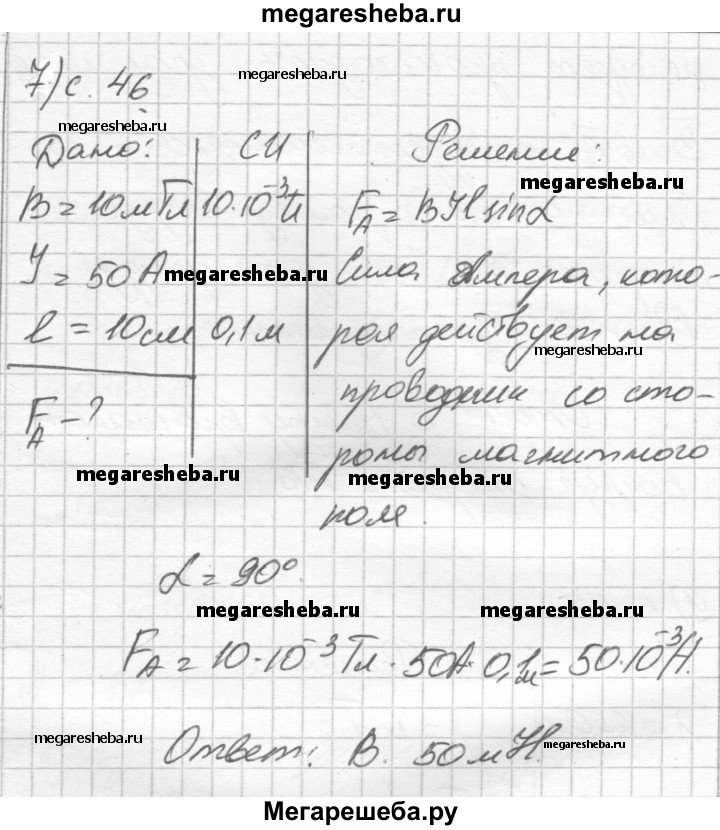 megaresheba.ru
7) с. 46 megaresheba.ru
megaresheba.ru
Дано: СИ Решение:
megaresheba.ru
B = 10 мТл 10·10⁻³ F_A = BIl sinα
I = 50 А megaresheba.ru Сила Ампера, кото-
l = 10 см 0,1 м рая действует на
megaresheba.ru
F_A - ? проводник со сто-
роны магнитного
megaresheba.ru megaresheba.ru
поля.
α = 90°
megaresheba.ru megaresheba.ru
F_A = 10·10⁻³ Тл · 50А · 0,1м = 50·10⁻³ Н.
megaresheba.ru
Ответ: В. 50 мН. megaresheba.ru
Мегарешеба.ру